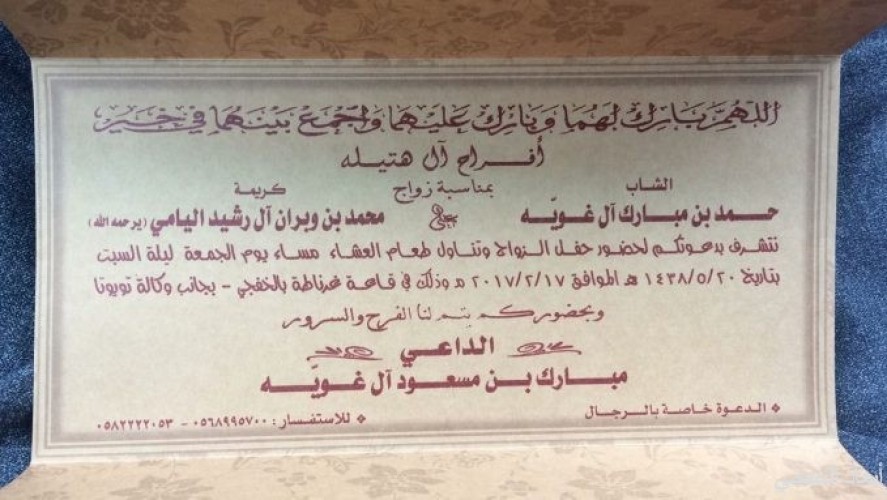 اللهم بارك لهما وبارك عليهما واجمع بينهما في خير
أفراح آل هتيله
الشاب بمناسبة زواج كريمة
حمد بن مبارك آل غويّه محمد بن وبران آل رشيد اليامي (يرحمه الله)
نتشرف بدعوتكم لحضور حفل الزواج وتناول طعام العشاء مساء يوم الجمعة ليلة السبت
بتاريخ ١٤٣٨/٥/٢٠ هـ الموافق ٢٠١٧/٢/١٧ م وذلك في قاعة غرناطة بالخفجي - بجانب وكالة تويوتا
وبحضوركم يتم لنا الفرح والسرور
الداعي
مبارك بن مسعود آل غويّه
الدعوة خاصة بالرجال للاستفسار : ٠٥٦٨٩٩٥٧٠٠ - ٠٥٨٢٢٢٢٠٥٣